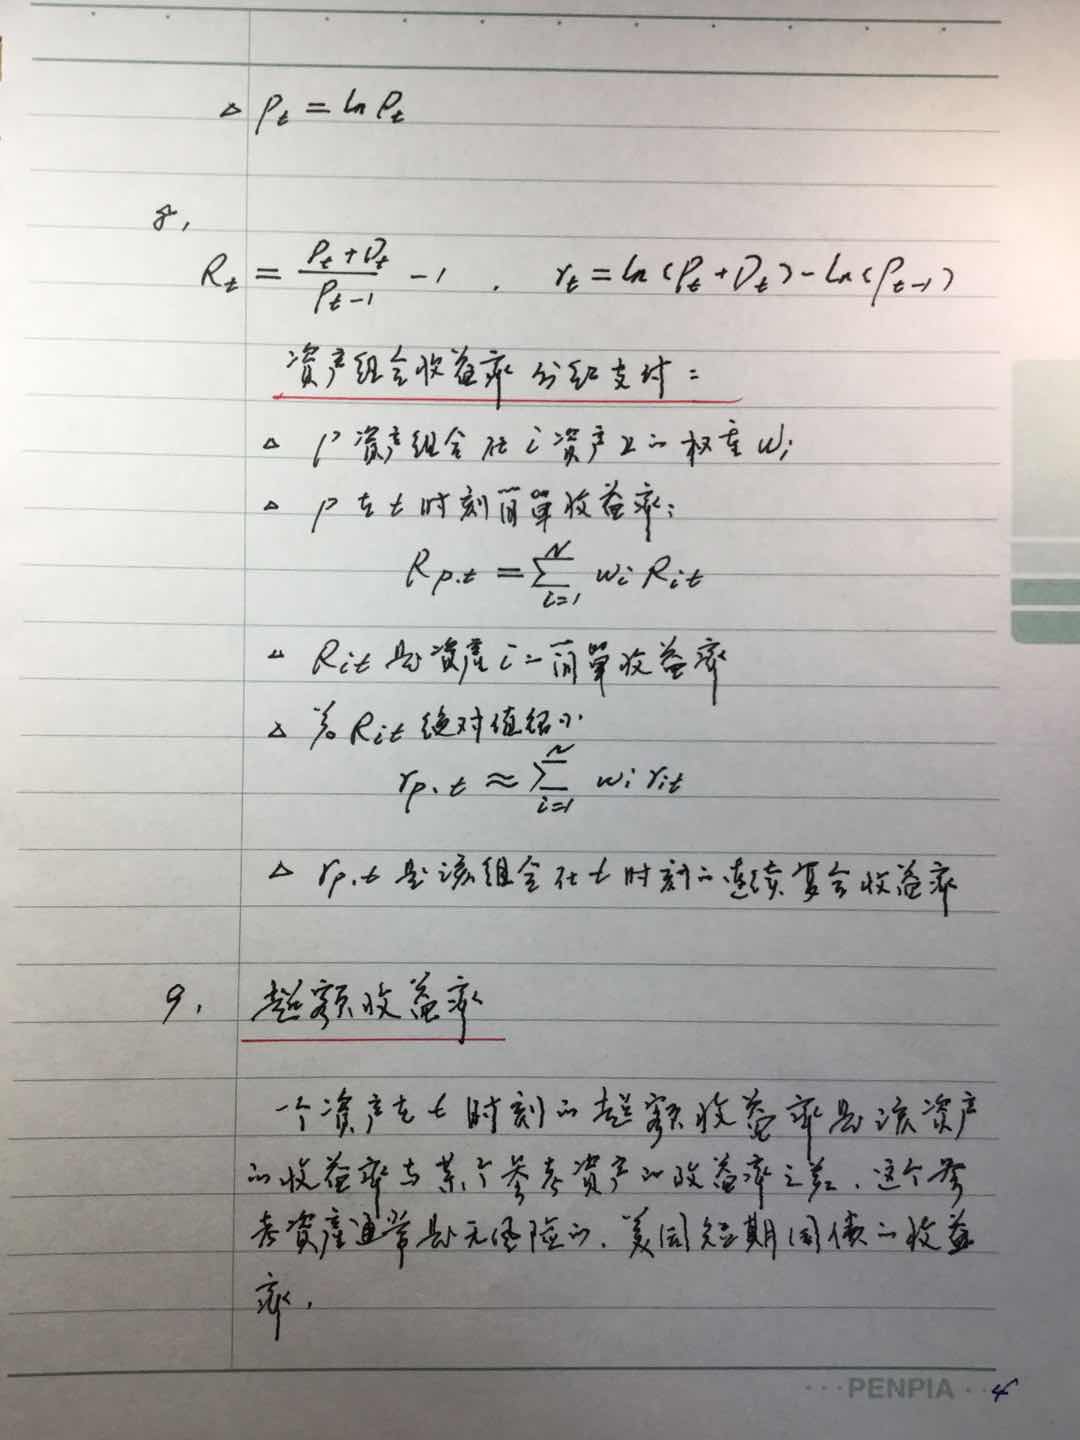 △ pₜ = ln Pₜ
8,
Rₜ = (Pₜ + Dₜ)/Pₜ₋₁ - 1 . rₜ = ln(Pₜ + Dₜ) - ln(Pₜ₋₁)
资产组合收益率 分红支付:
△ P 资产组合在 i 资产上的权重 wi
△ P 在 t 时刻简單收益率:
Rp.t = ∑(i=1, N) wi Rit
△ Rit 是资產 i 的简單收益率
△ 若 Rit 绝对值很小
rp.t ≈ ∑(i=1, N) wi rit
△ rp.t 是该组合在 t 时刻的连续复合收益率
9. 超额收益率
一个资产在 t 时刻的超额收益率是该资产
的收益率与某个参考资产的收益率之差. 这个参
考资產通常是无风险的. 美国短期国债的收益
率.
PENPIA 4